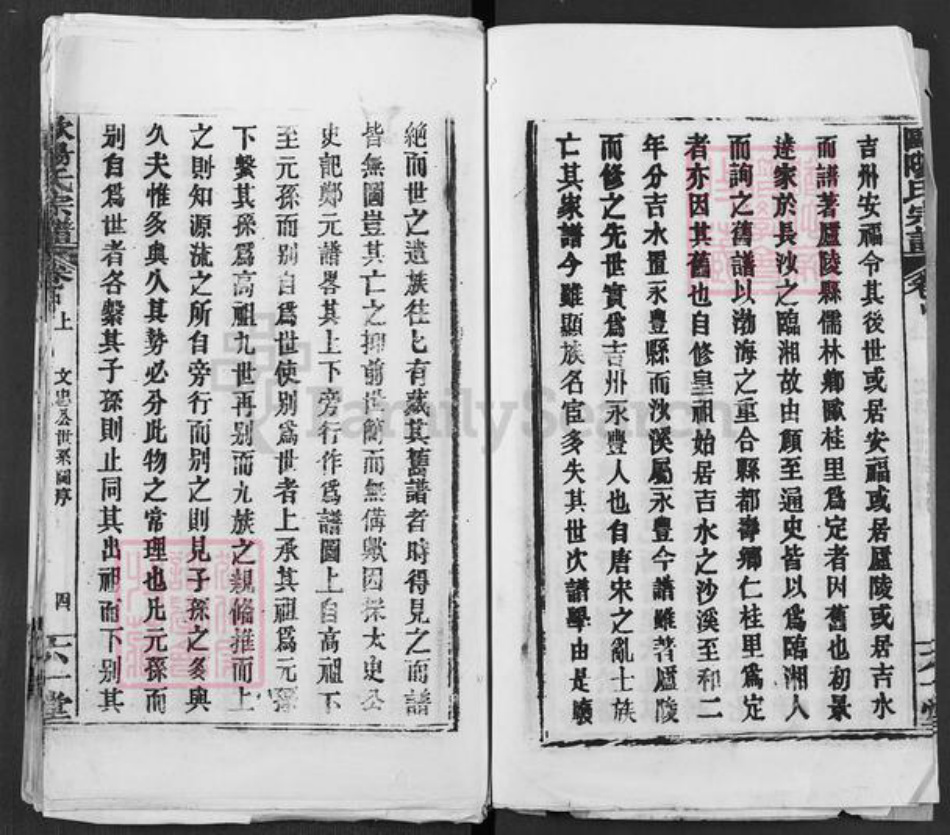 吉州安福令其後世或居安福或居廬陵或居吉水
而譜著廬陵縣儒林鄉歐桂里為定者因舊也初景
達家於長沙之臨湘故由顏至通史皆以為臨湘人
而詢之舊譜以渤海之重合縣都壽鄉仁桂里為定
者亦因其舊也自修皇祖始居吉水之沙溪至和二
年分吉水置永豐縣而沙溪屬永豐今譜雖著廬陵
而修之先世實為吉州永豐人也自唐宋之亂士族
亡其家譜今雖顯族名宦多失其世次譜學由是壞
絕而世之遺族往匕有藏其舊譜者時得見之而譜
皆無圖豈其亡之抑前世簡而無備歟因採太史公
史記鄭元譜畧其上下旁行作為譜圖上自高祖下
至元孫而別自為世使別為世者上承其祖為元孫
下繫其孫為高祖九世再別而九族之親備推而上
之則知源流之所自旁行而別之則見子孫之多與
久夫惟多與久其勢必分此物之常理也凡元孫而
別自為世者各繫其子孫則止同其出祖而下別其
歐陽氏宗譜
上
文忠公世系圖序
四
六一堂
FamilySearch